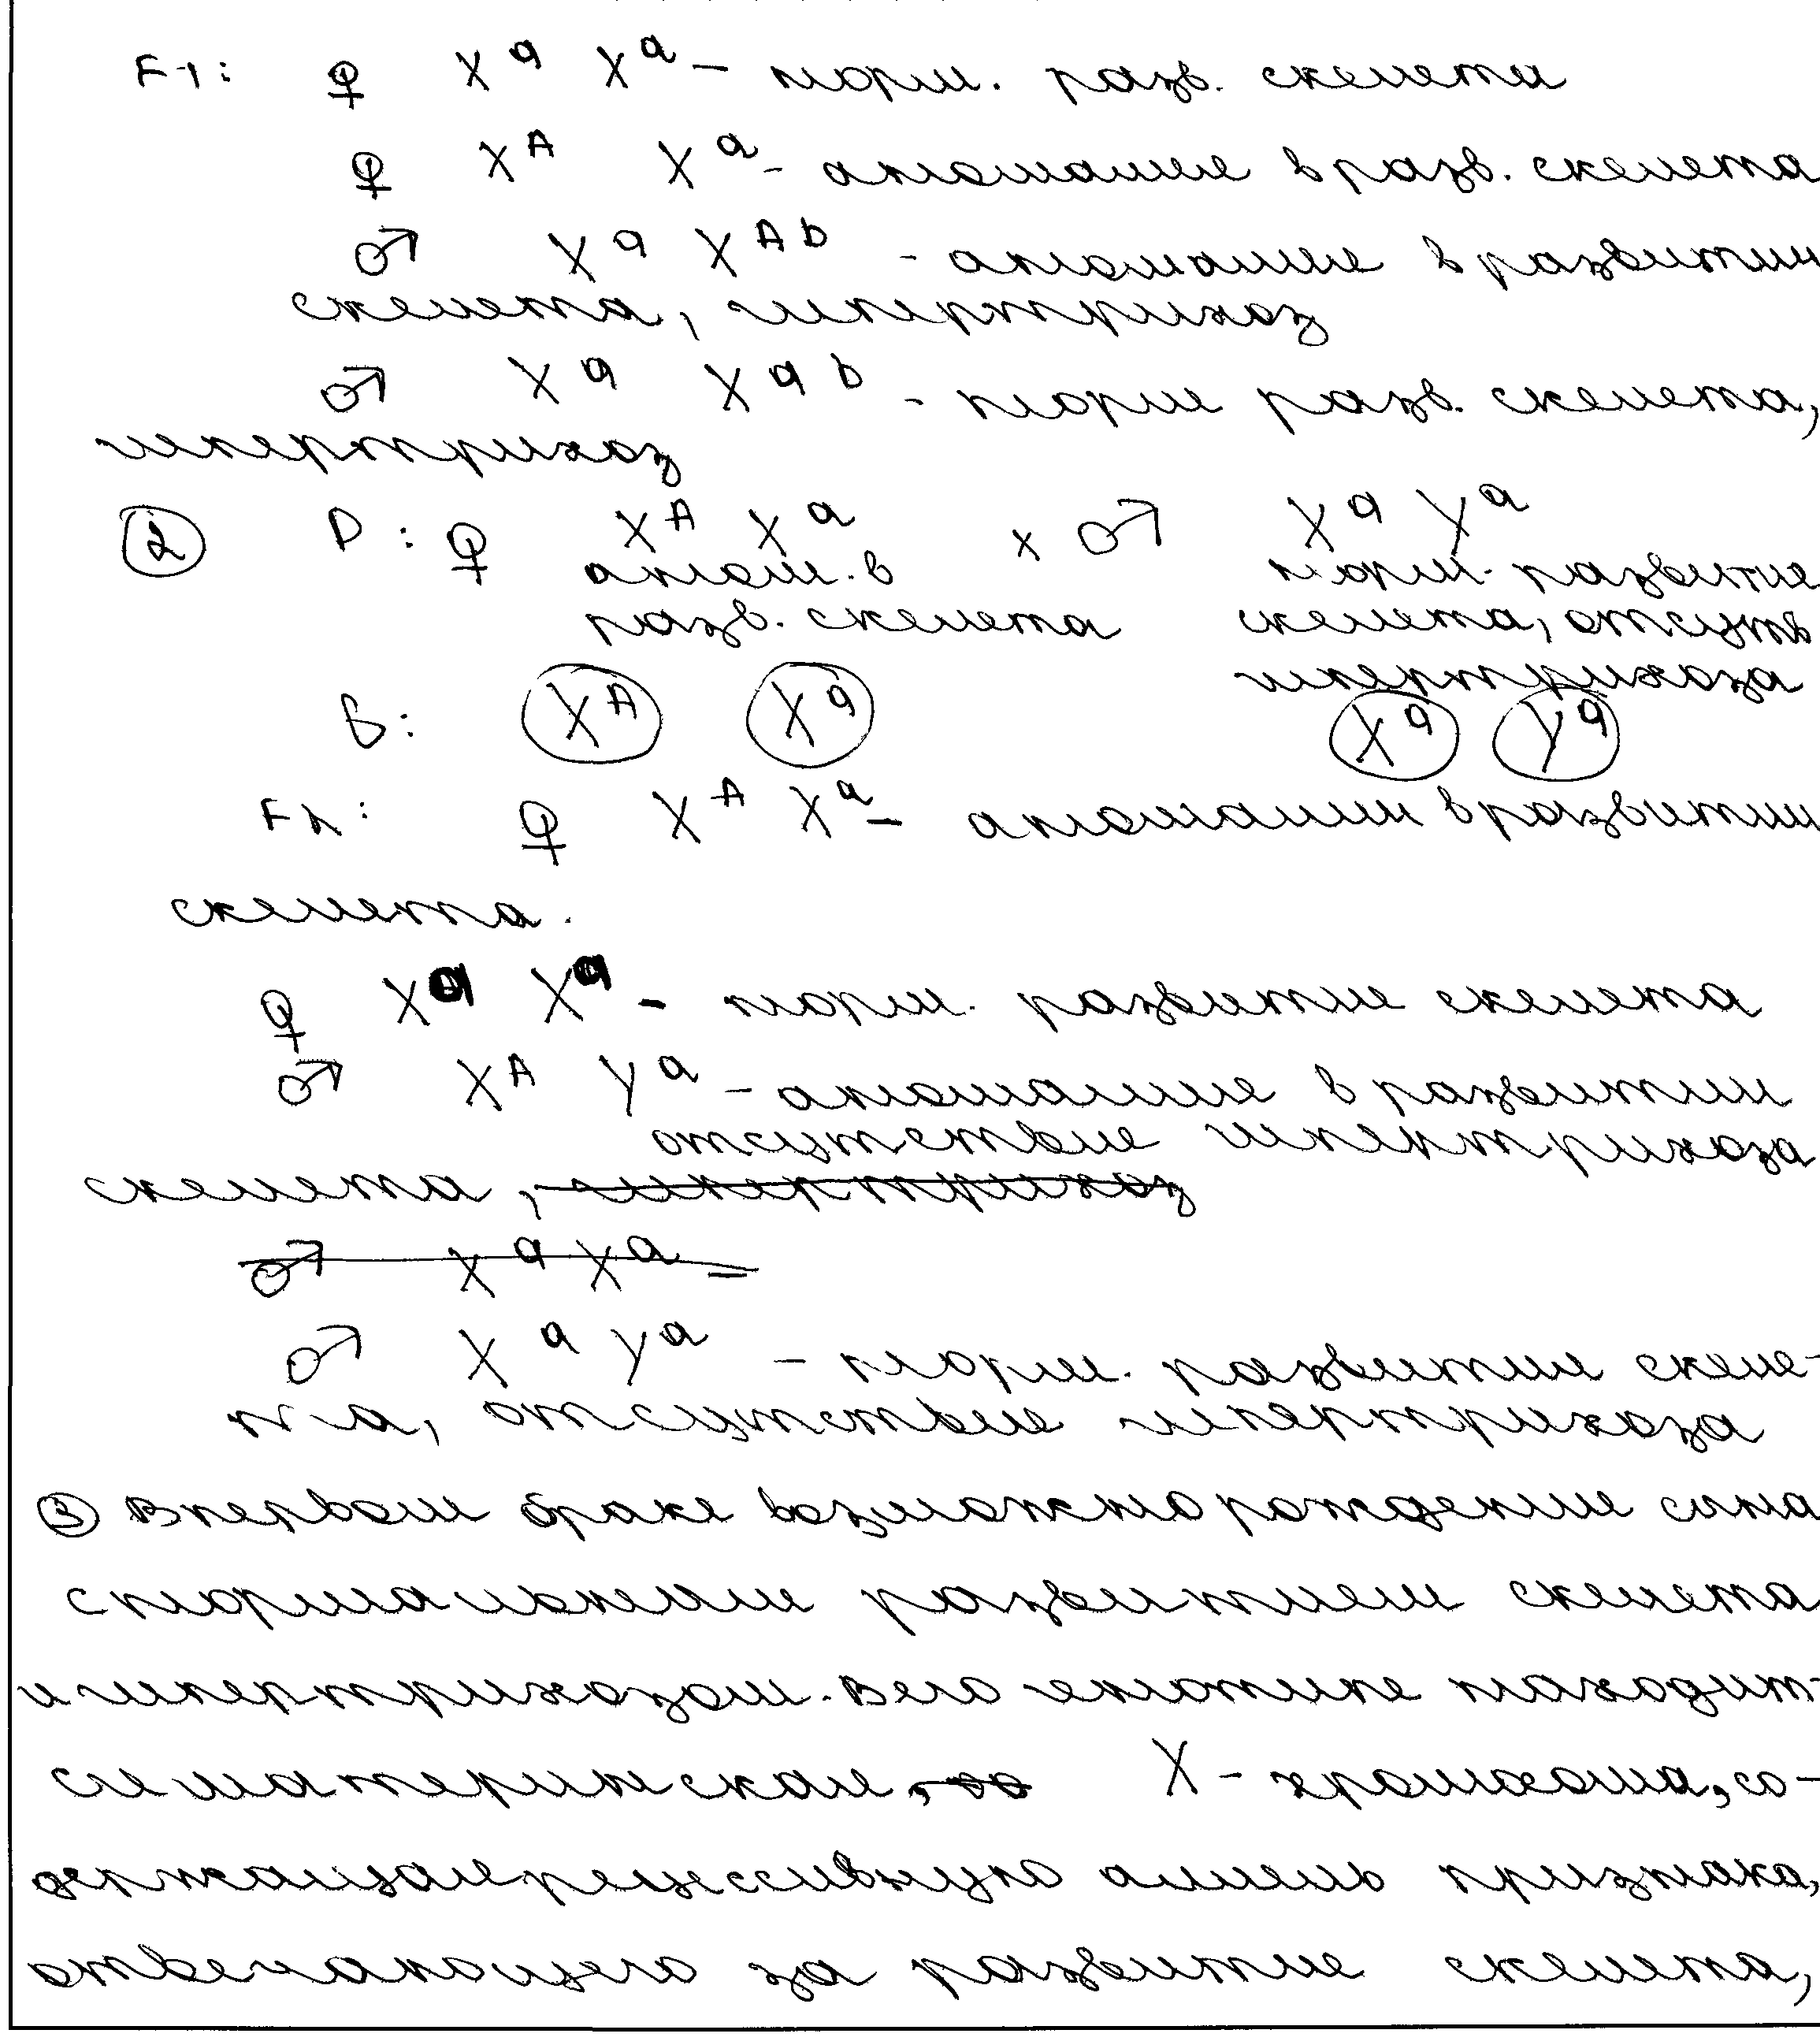 F1: ♀ X^a X^a – норм. разв. скелета
♀ X^A X^a – аномалие в разв. скелета
♂ X^a X^Ab – аномалие в развитии
скелета, гипертрихоз
♂ X^a X^ab – норме разв. скелета,
гипертрихоз
② P: ♀ X^A X^a x ♂ X^a Y^a
аном. в норм. развитие
разв. скелета скелета, отсутв
гипертрихоза
G: X^A X^a X^a Y^a
F2: ♀ X^A X^a – аномалии в развитии
скелета.
♀ X^a X^a – норм. развитие скелета
♂ X^A Y^a – аномалие в развитии
отсутствие гипертрихоза
скелета, гипертрихоз
♂ X^a X^a –
♂ X^a Y^a – норм. развитие скеле-
та, отсутствие гипертрихоза
③ В первом браке возможно рождение сына
с нормальным развитием скелета
и гипертрихозом. В его генотипе находит-
ся материнская, X-хромосома, со-
держащая рецессивную аллель признака,
отвечающего за развитие скелета,